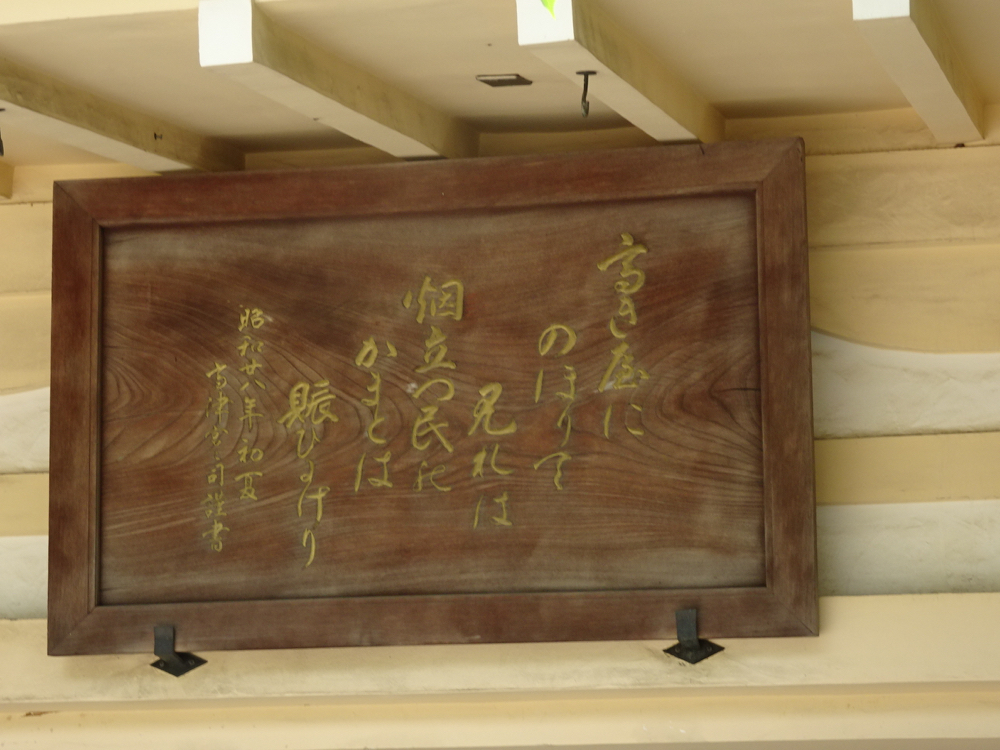 高き屋に
のほりて
見れは
烟立つ民の
かまとは
賑ひにけり
昭和廿八年初夏
高津宮司謹書